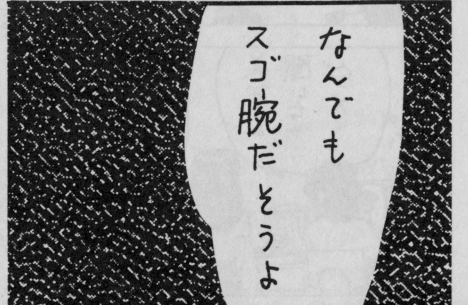 なんでも
スゴ腕だそうよ